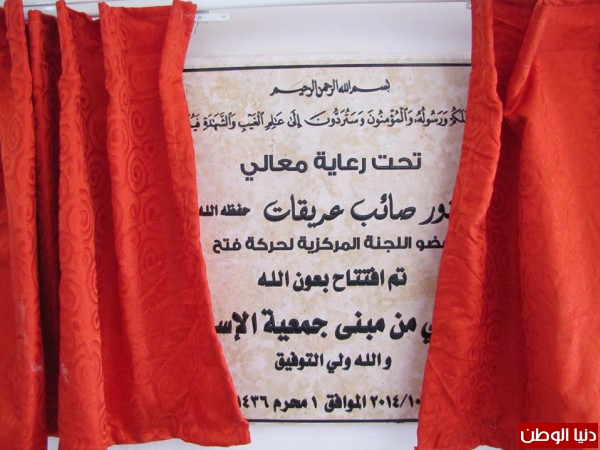 بسم الله الرحمن الرحيم
وَرَسُولُهُ وَالْمُؤْمِنُونَ وَسَتُرَدُّونَ إِلَى عَالِمِ الْغَيْبِ وَالشَّهَادَةِ
تحت رعاية معالي
صائب عريقات حفظه الله
ضو اللجنة المركزية لحركة فتح
تم افتتاح بعون الله
ي من مبنى جمعية الإس
والله ولي التوفيق
٢٠١٤/١٠ الموافق ١ محرم ١٤٣٦
دنيا الوطن